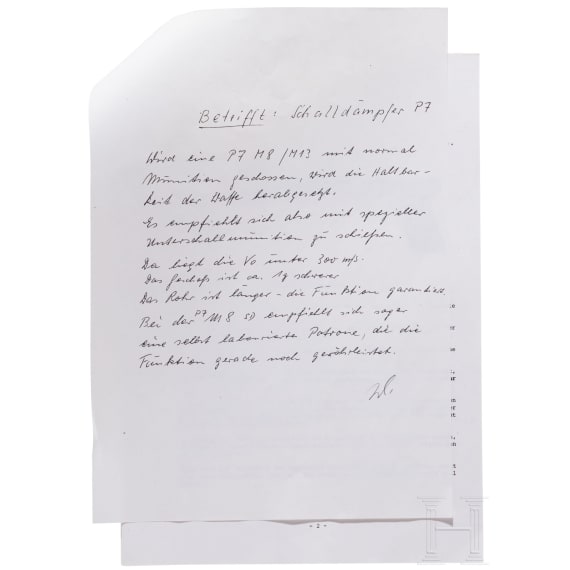 Betrifft: Schalldämpfer P7
Wird eine P7 M8/M13 mit normal
Munition geschossen, wird die Haltbar-
keit der Waffe herabgesetzt.
Es empfiehlt sich also mit spezieller
Unterschallmunition zu schießen.
Da liegt die Vo unter 300 m/s.
Das Geschoß ist ca. 1g schwerer
Das Rohr ist länger - die Funktion garantiert.
Bei der P7 M8 SD empfiehlt sich sogar
eine selbst laborierte Patrone, die die
Funktion gerade noch gewährleistet.
- 2 -
H